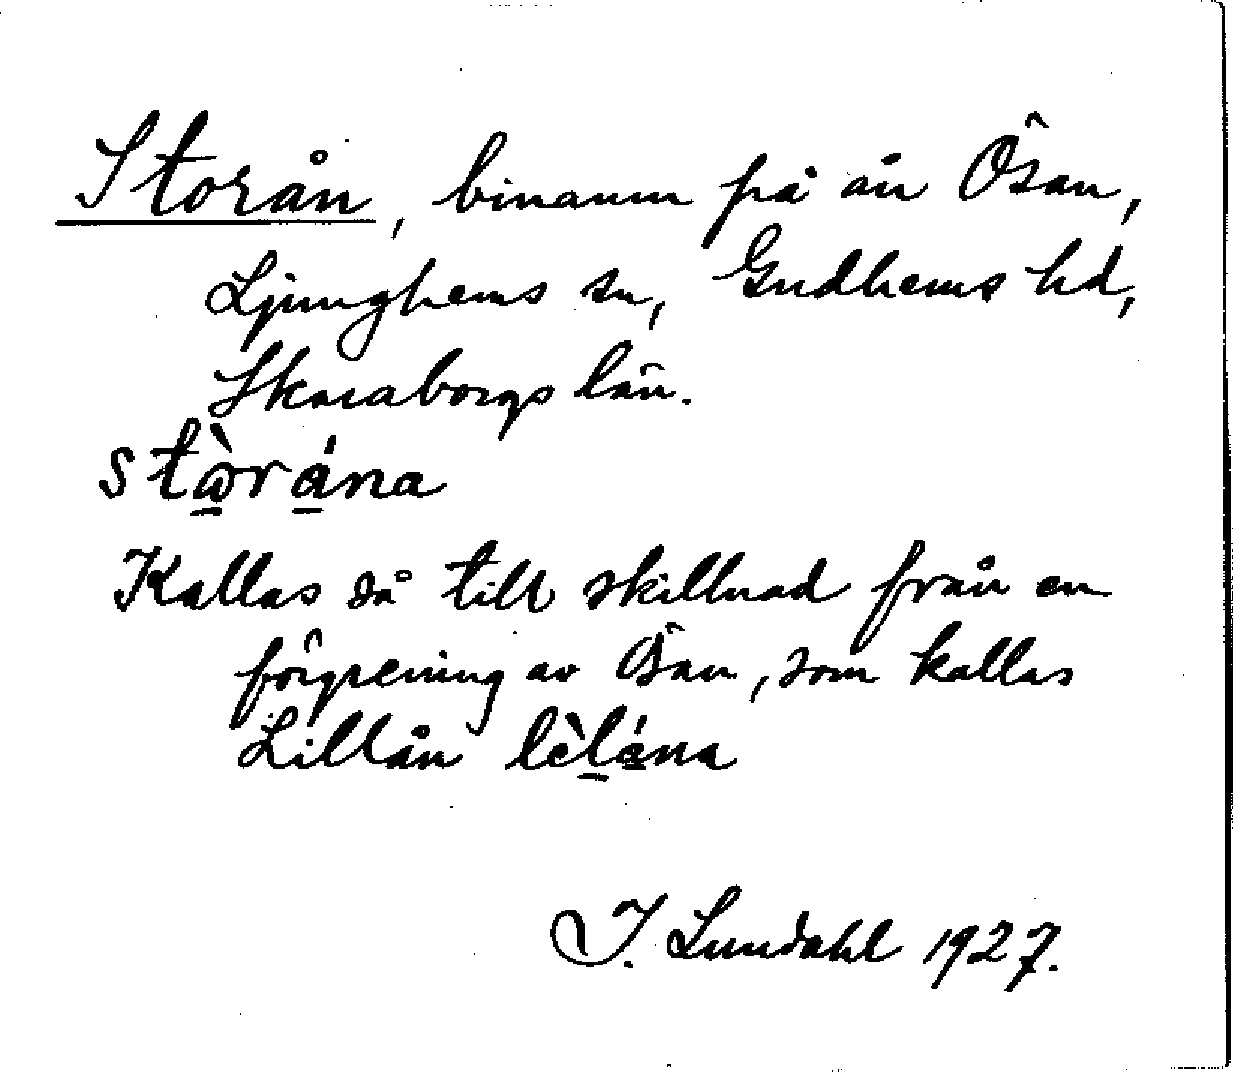 Storån, binamn på ån Ösan,
Ljunghems sn, Gudhems hd,
Skaraborgs län.
stὼ̲rá̲na
Kallas så till skillnad från en
förgrening av Ösan, som kallas
Lillån lèl̲á̲na
I. Lundahl 1927.